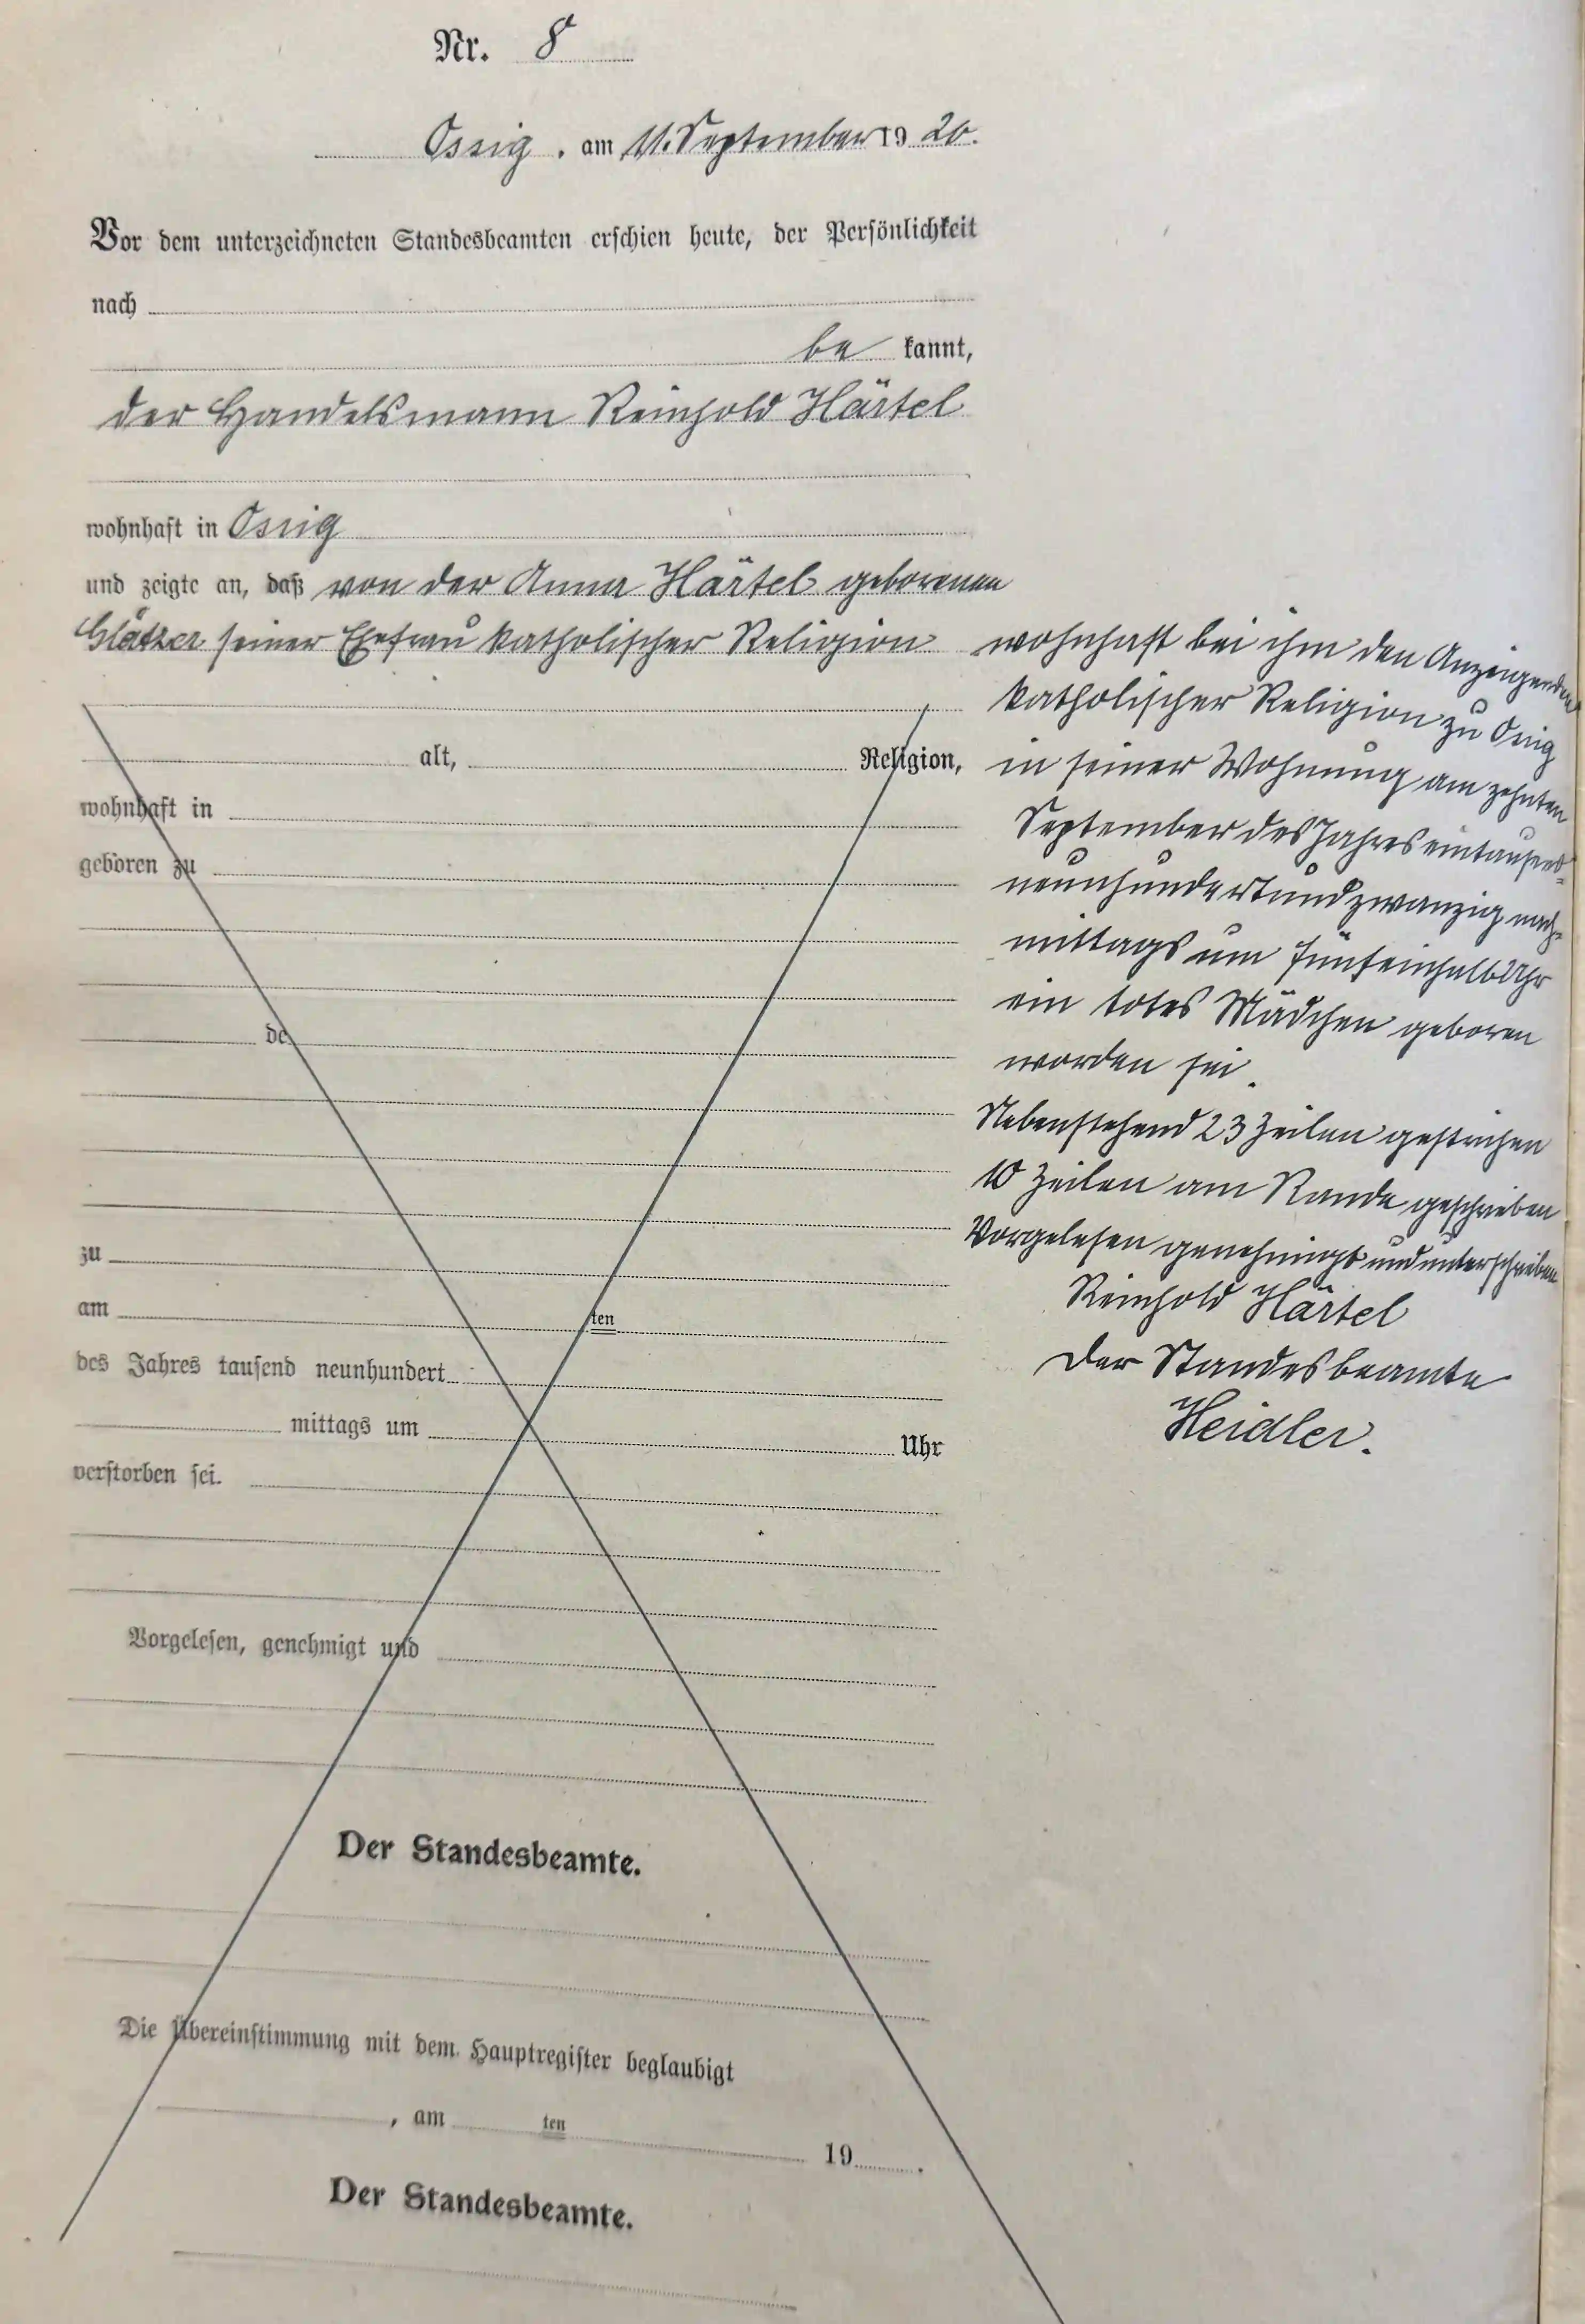 Nr. 8
Ossig, am 11. September 1920.
Vor dem unterzeichneten Standesbeamten erschien heute, der Persönlichkeit
nach
be kannt,
der Handelsmann Reinhold Härtel
wohnhaft in Ossig
und zeigte an, daß von der Anna Härtel geborenen
Glätzer seiner Ehefrau katholischer Religion
wohnhaft bei ihm den Anzeigenden
katholischer Religion zu Ossig
in seiner Wohnung am zehnten
September des Jahres eintausend-
neunhundertundzwanzig nach-
mittags um fünfeinhalb Uhr
ein totes Mädchen geboren
worden sei.
Nebenstehend 23 Zeilen gestrichen
10 Zeilen am Rande geschrieben
Vorgelesen genehmigt und unterschrieben
Reinhold Härtel
Der Standesbeamte
Heidler.
alt, Religion,
wohnhaft in
geboren zu
de
zu
am ten
des Jahres tausend neunhundert
mittags um Uhr
verstorben sei.
Vorgelesen, genehmigt und
Der Standesbeamte.
Die Übereinstimmung mit dem Hauptregister beglaubigt
, am ten 19 .
Der Standesbeamte.